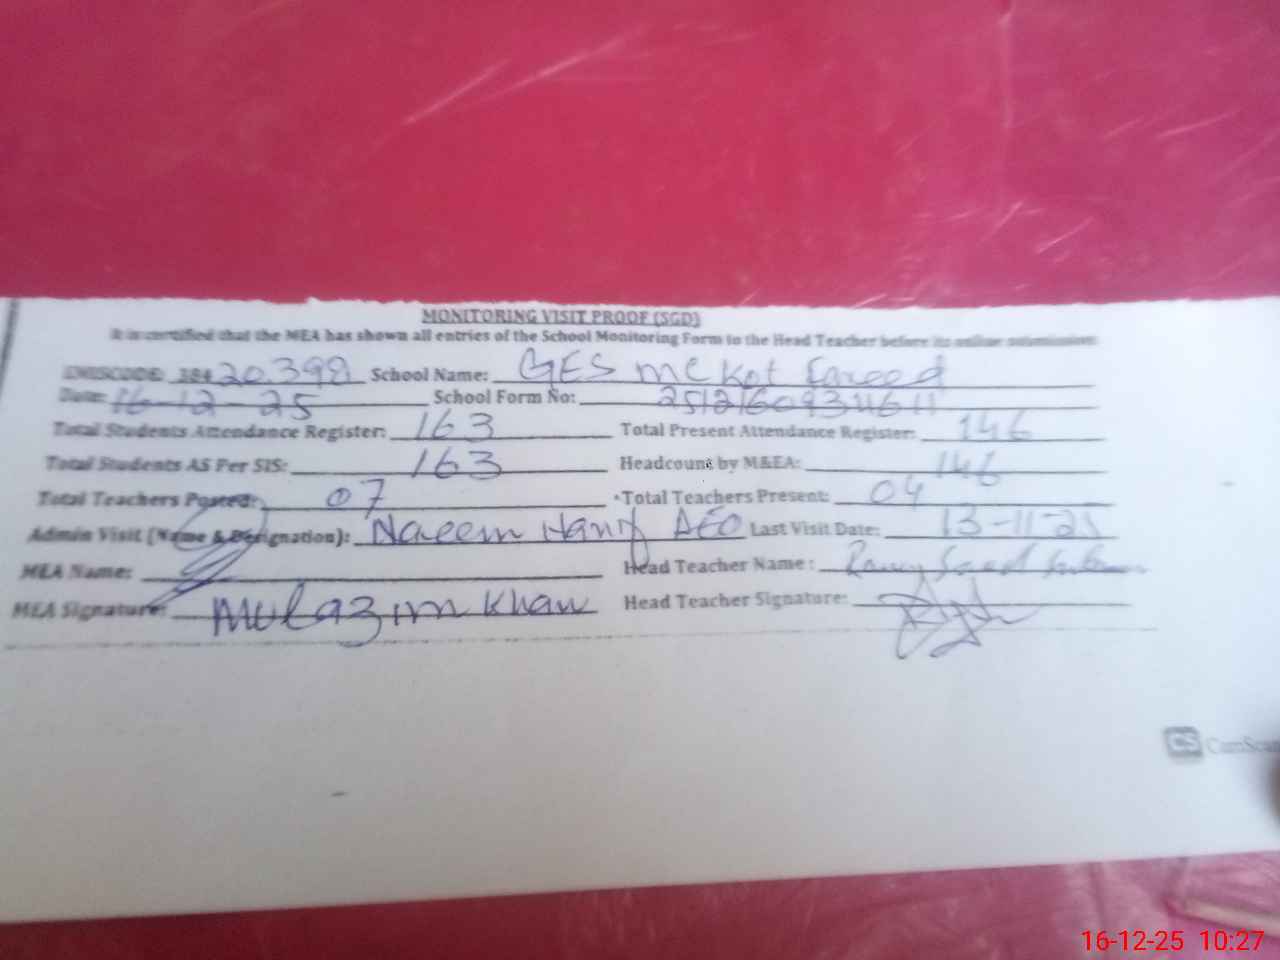 MONITORING VISIT PROOF (SGD)
It is certified that the MEA has shown all entries of the School Monitoring Form to the Head Teacher before its online submission
EMISCODE: 38420398 School Name: GES MC Kot Fareed
Date: 16-12-25 School Form No:
Total Students Attendance Register: 163 Total Present Attendance Register: 146
Total Students AS Per SIS: 163 Headcount by M&EA: 146
Total Teachers Posted: 07 Total Teachers Present: 04
Admin Visit (Name & Designation): Naeem Hanif AEO Last Visit Date: 13-11-25
MEA Name: Head Teacher Name :
MEA Signature: Mulazim Khan Head Teacher Signature:
CS CamScan
16-12-25 10:27